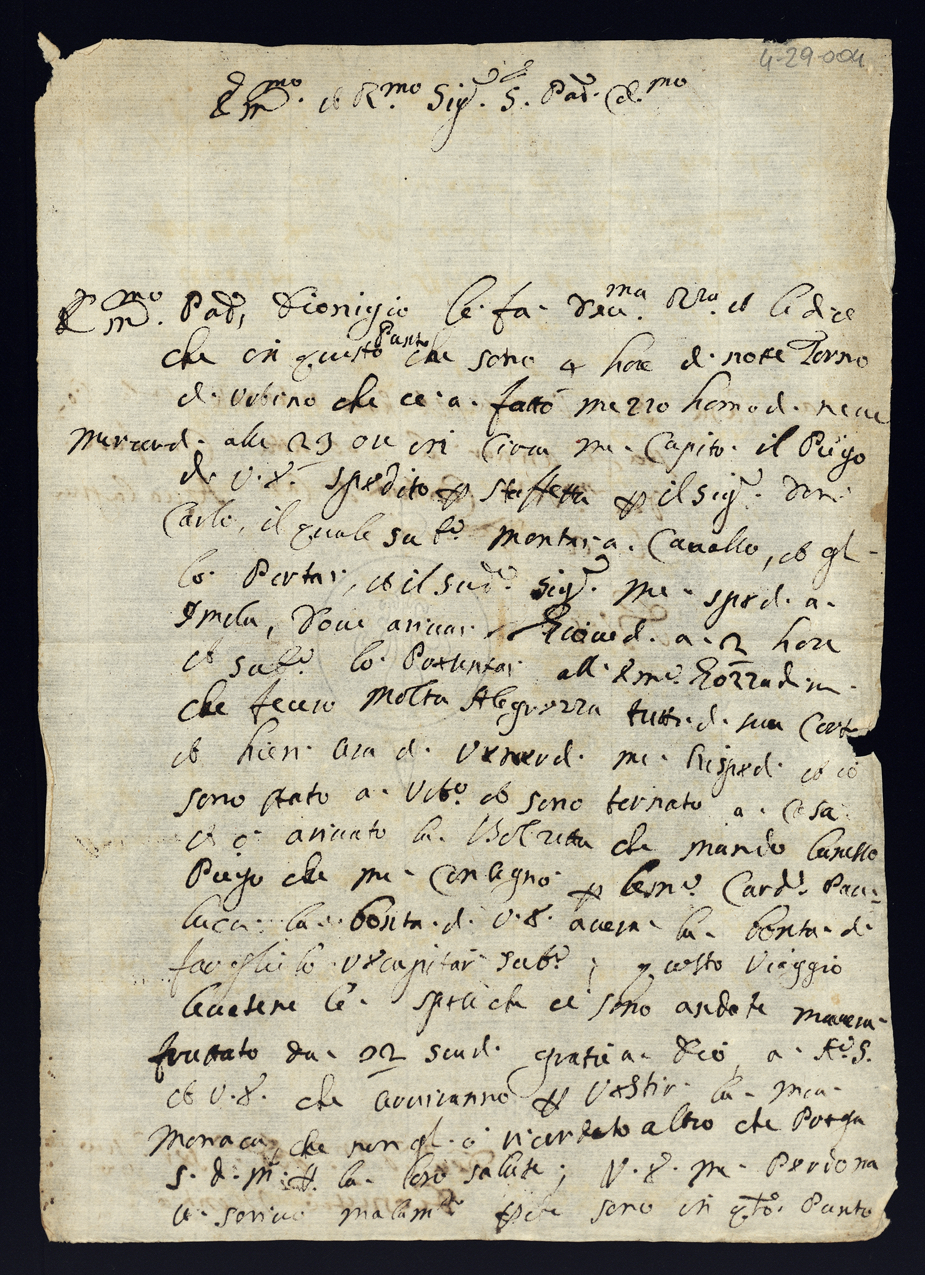 4-29-004
Emmo. et Rmo Sigr. S. Pad. Col.mo
Emmo. Padr Dionigio le fa Devma Rza et le dice
che in questo Punto che sono 4 hore di note Torno
di Urbino che ce a fatto mezzo homo di neve
mercordi alle 23 ore in Circa me Capito il Piego
di V. E. spedito p staffetta p il Sigr. Don
Carlo, il quale subo. montai a Cavallo, et gl
lo Portai, et il sudo. Sigr. me spedi a
Imola, Dove arivai Giovedi a 2 hore
et subo. lo Presentai all Emo. Gozzadini
che fecero Molta Alegrezza tutti di sua Corte
et hieri sera di Venerdi me rispedi et io
sono stato a Urbo. et sono tornato a Casa
et o arivato la Bolzetta che mando
Piego che me Consegno p Card. Pau=
lucci la bonta di V. E. avera la bonta di
farglielo recapitar subo. ; questo Viaggio
levatene le spese che ci sono andate
fruttato da 12 scudi gratia Dio a S.
et V. E. che serviranno p Vestir la mia
Monaca, che non gl o ricordato altro che Prega
S. D. M. p la loro salute ; V. E. me Perdona
se scrivo malamte pche sono in qto. Punto